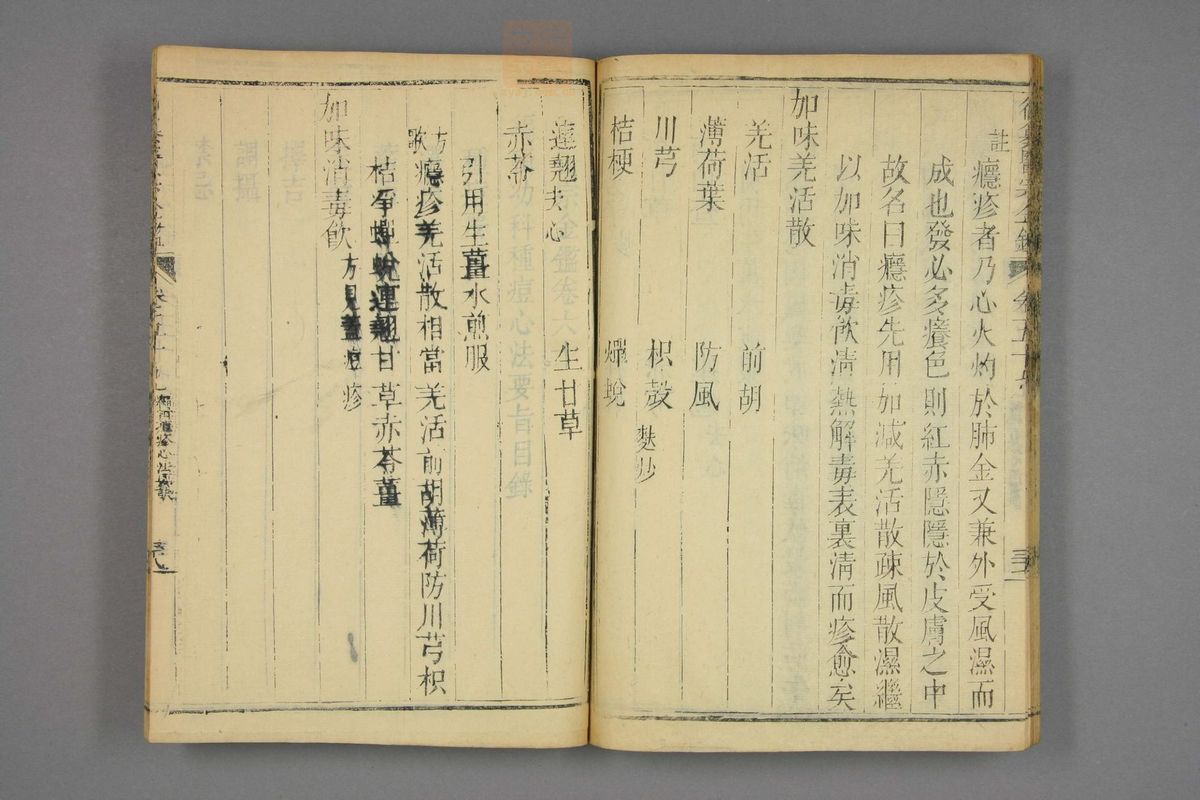 註
癮疹者乃心火灼於肺金又兼外受風濕而
成也發必多癢色則紅赤隱隱於皮膚之中
故名曰癮疹先用加減羌活散疎風散濕繼
以加味消毒飲清熱解毒表裏清而疹愈矣
加味羌活散
羌活 前胡
薄荷葉 防風
川芎 枳殼 麩炒
桔梗 蟬蛻
連翹 去心 生甘草
赤苓
引用生薑水煎服
方歌
癮疹羌活散相當羌活前胡薄荷防川芎枳
桔爭蟬蛻連翹甘草赤苓薑
加味消毒飲 方見蓋痘疹